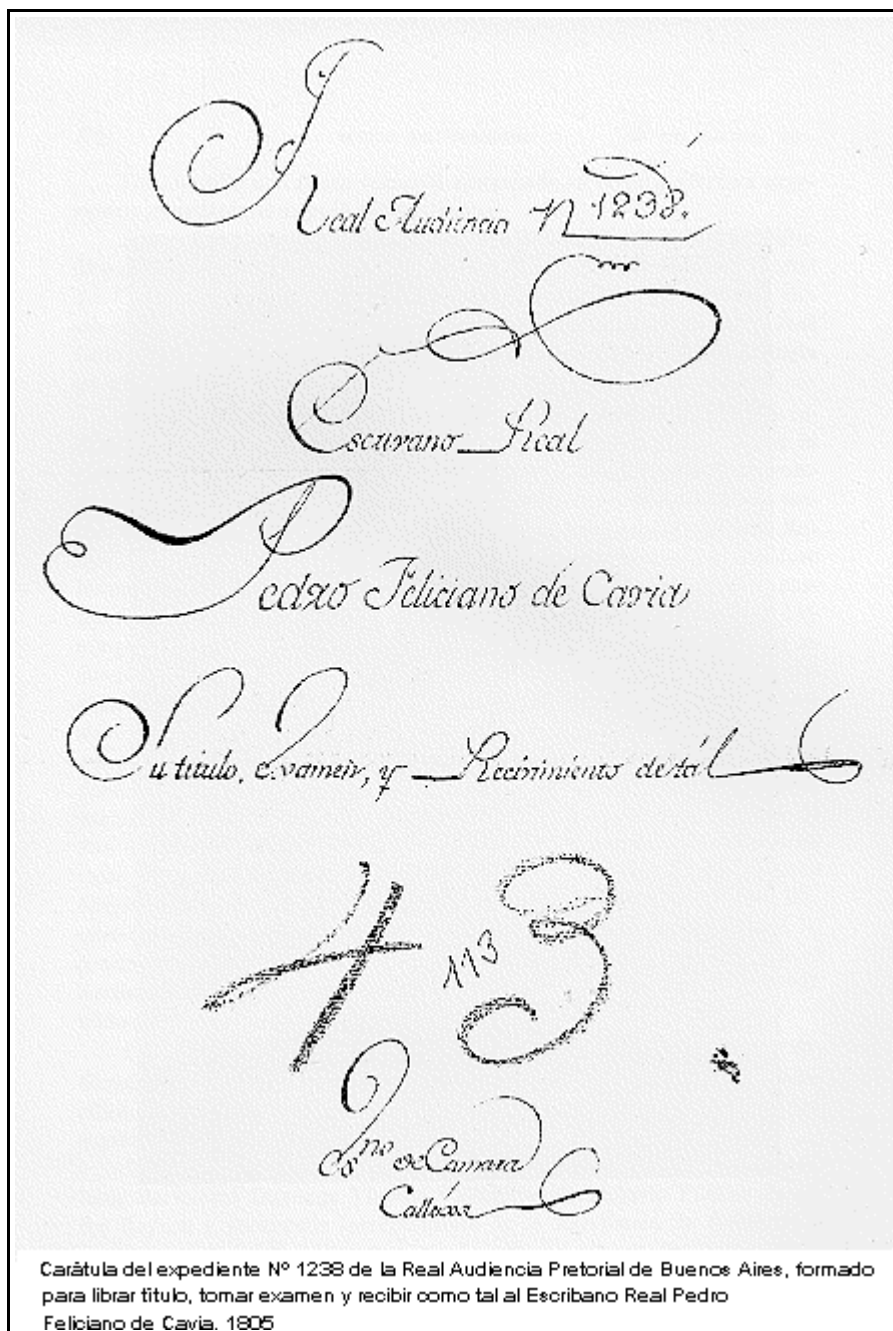 Real Audiencia N 1238.
Escrivano Real
Pedro Feliciano de Cavia
Su titulo, examen, y Recivimiento de tál
43
113
Es.no de Camara
Carátula del expediente Nº 1238 de la Real Audiencia Pretorial de Buenos Aires, formado
para librar título, tomar examen y recibir como tal al Escribano Real Pedro
Feliciano de Cavia. 1805